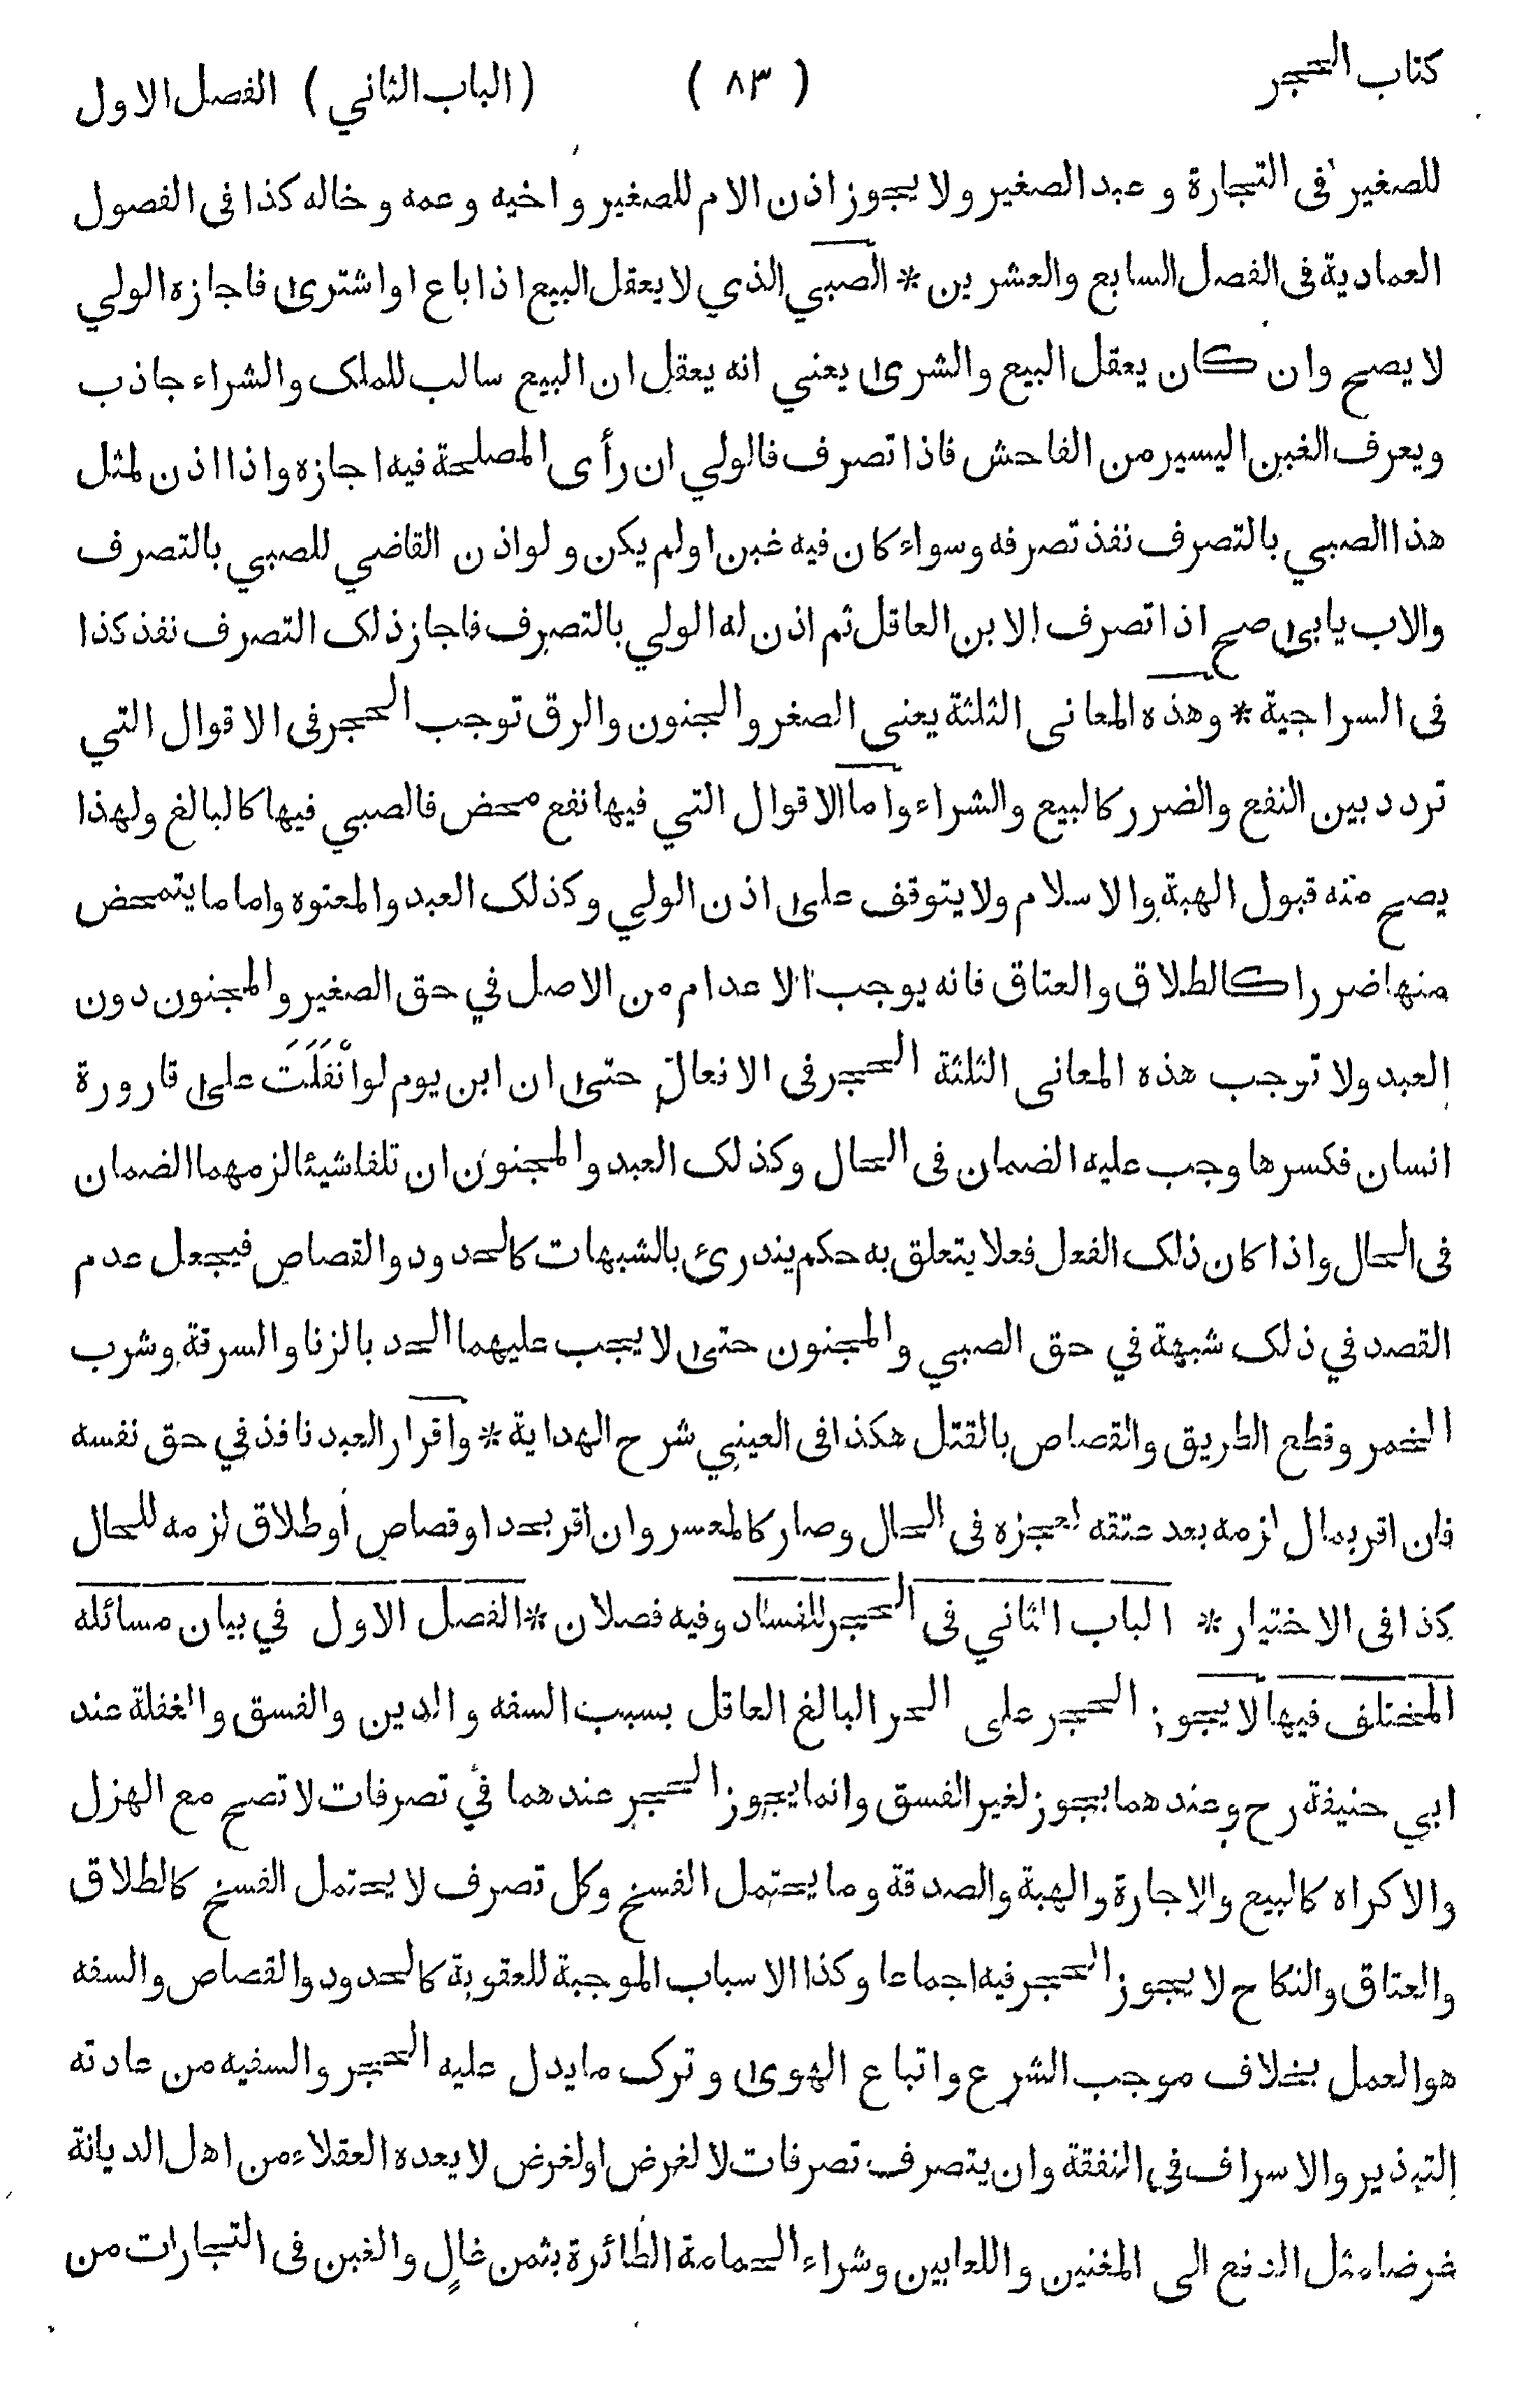 كتاب الحجر ( ٨٣ ) (الباب الثاني) الفصل الاول
للصغير فى التجارة و عبد الصغير ولا يجوز اذن الام للصغير و اخيه و عمه و خاله كذا فى الفصول
العمادية فى الفصل السابع والعشرين * الصبي الذي لا يعقل البيع اذا باع او اشترىٰ فاجازه الولي
لا يصح وان كان يعقل البيع والشرىٰ يعني انه يعقل ان البيع سالب للملك والشراء جاذب
ويعرف الغبن اليسير من الفاحش فاذا تصرف فالولي ان رأى المصلحة فيه اجازه واذا اذن لمثل
هذا الصبي بالتصرف نفذ تصرفه وسواء كان فيه غبن او لم يكن و لو اذن القاضي للصبي بالتصرف
والاب يابىٰ صح اذا تصرف الابن العاقل ثم اذن له الولي بالتصرف فاجاز ذلك التصرف نفذ كذا
فى السراجية * وهذه المعانى الثلثة يعنى الصغر والجنون والرق توجب الحجر فى الاقوال التي
تردد بين النفع والضرر كالبيع والشراء واما الاقوال التي فيها نفع محض فالصبي فيها كالبالغ ولهذا
يصح منه قبول الهبة والاسلام ولا يتوقف علىٰ اذن الولي وكذلك العبد والمعتوه واما ما يتمحض
منها ضررا كالطلاق والعتاق فانه يوجب الاعدام من الاصل في حق الصغير والمجنون دون
العبد ولا توجب هذه المعانى الثلثة الحجر فى الافعال حتىٰ ان ابن يوم لو انْفَلَتَ علىٰ قارورة
انسان فكسرها وجب عليه الضمان فى الحال وكذلك العبد والمجنون ان تلفا شيئا لزمهما الضمان
فى الحال واذا كان ذلك الفعل فعلا يتعلق به حكم يندرئ بالشبهات كالحدود والقصاص فيجعل عدم
القصد في ذلك شبهة في حق الصبي والمجنون حتىٰ لا يجب عليهما الحد بالزنا والسرقة وشرب
الخمر وقطع الطريق والقصاص بالقتل هكذا فى العيني شرح الهداية * واقرار العبد نافذ في حق نفسه
فان اقر بمال لزمه بعد عتقه لعجزه فى الحال وصار كالمعسر وان اقر بحد او قصاص أو طلاق لزمه للحال
كذا فى الاختيار * الباب الثاني فى الحجر للفساد وفيه فصلان * الفصل الاول في بيان مسائله
المختلف فيها لا يجوز الحجر على الحر البالغ العاقل بسبب السفه والدين والفسق والغفلة عند
ابي حنيفة رح وعندهما يجوز لغير الفسق وانما يجوز الحجر عندهما في تصرفات لا تصح مع الهزل
والاكراه كالبيع والاجارة والهبة والصدقة وما يحتمل الفسخ وكل تصرف لا يحتمل الفسخ كالطلاق
والعتاق والنكاح لا يجوز الحجر فيه اجماعا وكذا الاسباب الموجبة للعقوبة كالحدود والقصاص والسفه
هو العمل بخلاف موجب الشرع واتباع الهوىٰ و ترك ما يدل عليه الحجر والسفيه من عادته
التبذير والاسراف فى النفقة وان يتصرف تصرفات لا لغرض او لغرض لا يعده العقلاء من اهل الديانة
غرضا مثل الدفع الى المغنين واللعابين وشراء الحمامة الطائرة بثمن غالٍ والغبن فى التجارات من